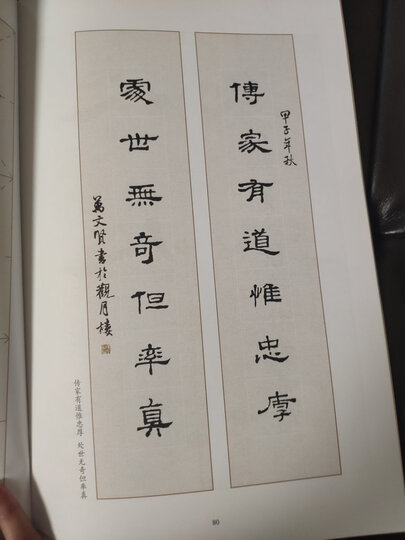 傳家有道惟忠厚
甲子年秋
處世無奇但率真
萬文賢書於觀月樓
传家有道惟忠厚 处世无奇但率真
80